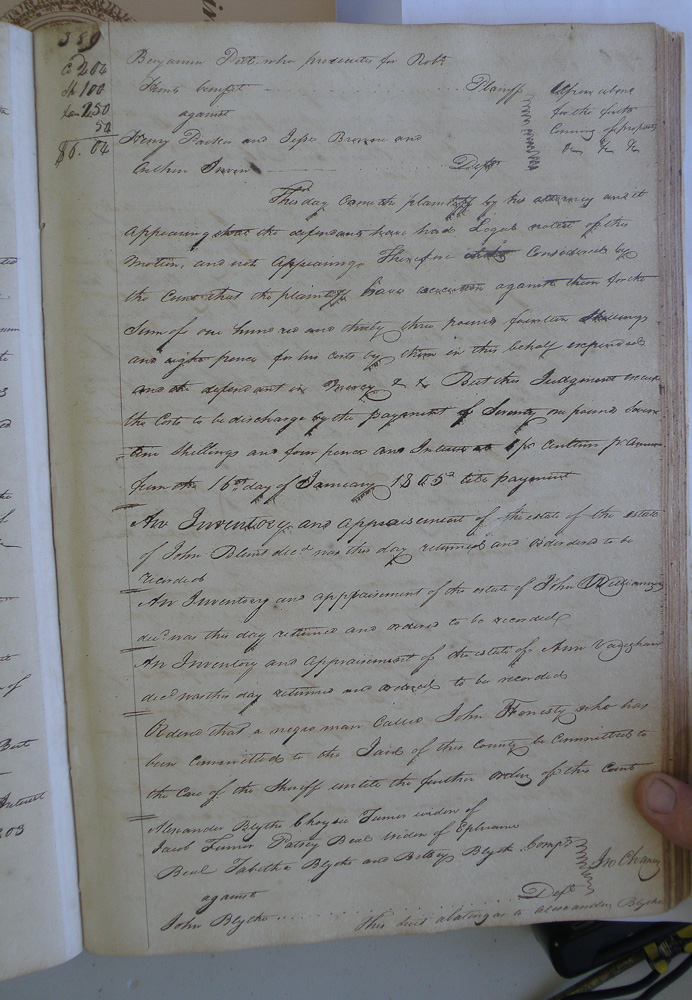 389
C 204
Sh 100
Jan 250
50
$6.04
Benjamin who prosecutes for Robt
benefit . . . . Plantff Upon
against for the
Henry Parker and Jesse and coming of
. . . . Defts
This day came the plaintiff by his attorney and it
appearing that the defendants have had Legal notest of this
Motion, and not appearing Therefore Considered by
the Court that the plaintiff have execution against them for the
Sum of one hundred and thirty three pounds fourteen Shillings
and eight pence for his costs by them in this behalf expended
and the defendant in Mercy & & But this Judgement
the Costs to be discharge by the payment of Seventy one pound
Shillings and four pence and Interest at pr Centum pr annum
from the 16th day of January 1805 till payment
An Inventory and appraisement of the estate of the estate
of John decd was this day returned and ordered to be
recorded
An Inventory and appraisement of the estate of John Williams
decd was this day returned and ordered to be recorded
An Inventory and appraisement of the estate of Ann Vaughan
decd was this day returned and ordered to be recorded
Ordered that a negro man Called John Honesty who has
been committed to the Jail of this County be Committed to
the Care of the Sheriff untill the further order of this Court
Alexander Blythe Turner widow of
Jacob Turner Patsey Beal widow of Ephraim
Beal Tabitha Blythe and Betsey Blythe Compts In Chancy
against
John Blythe . . . . Deft
This suit abating as to Alexander Blythe